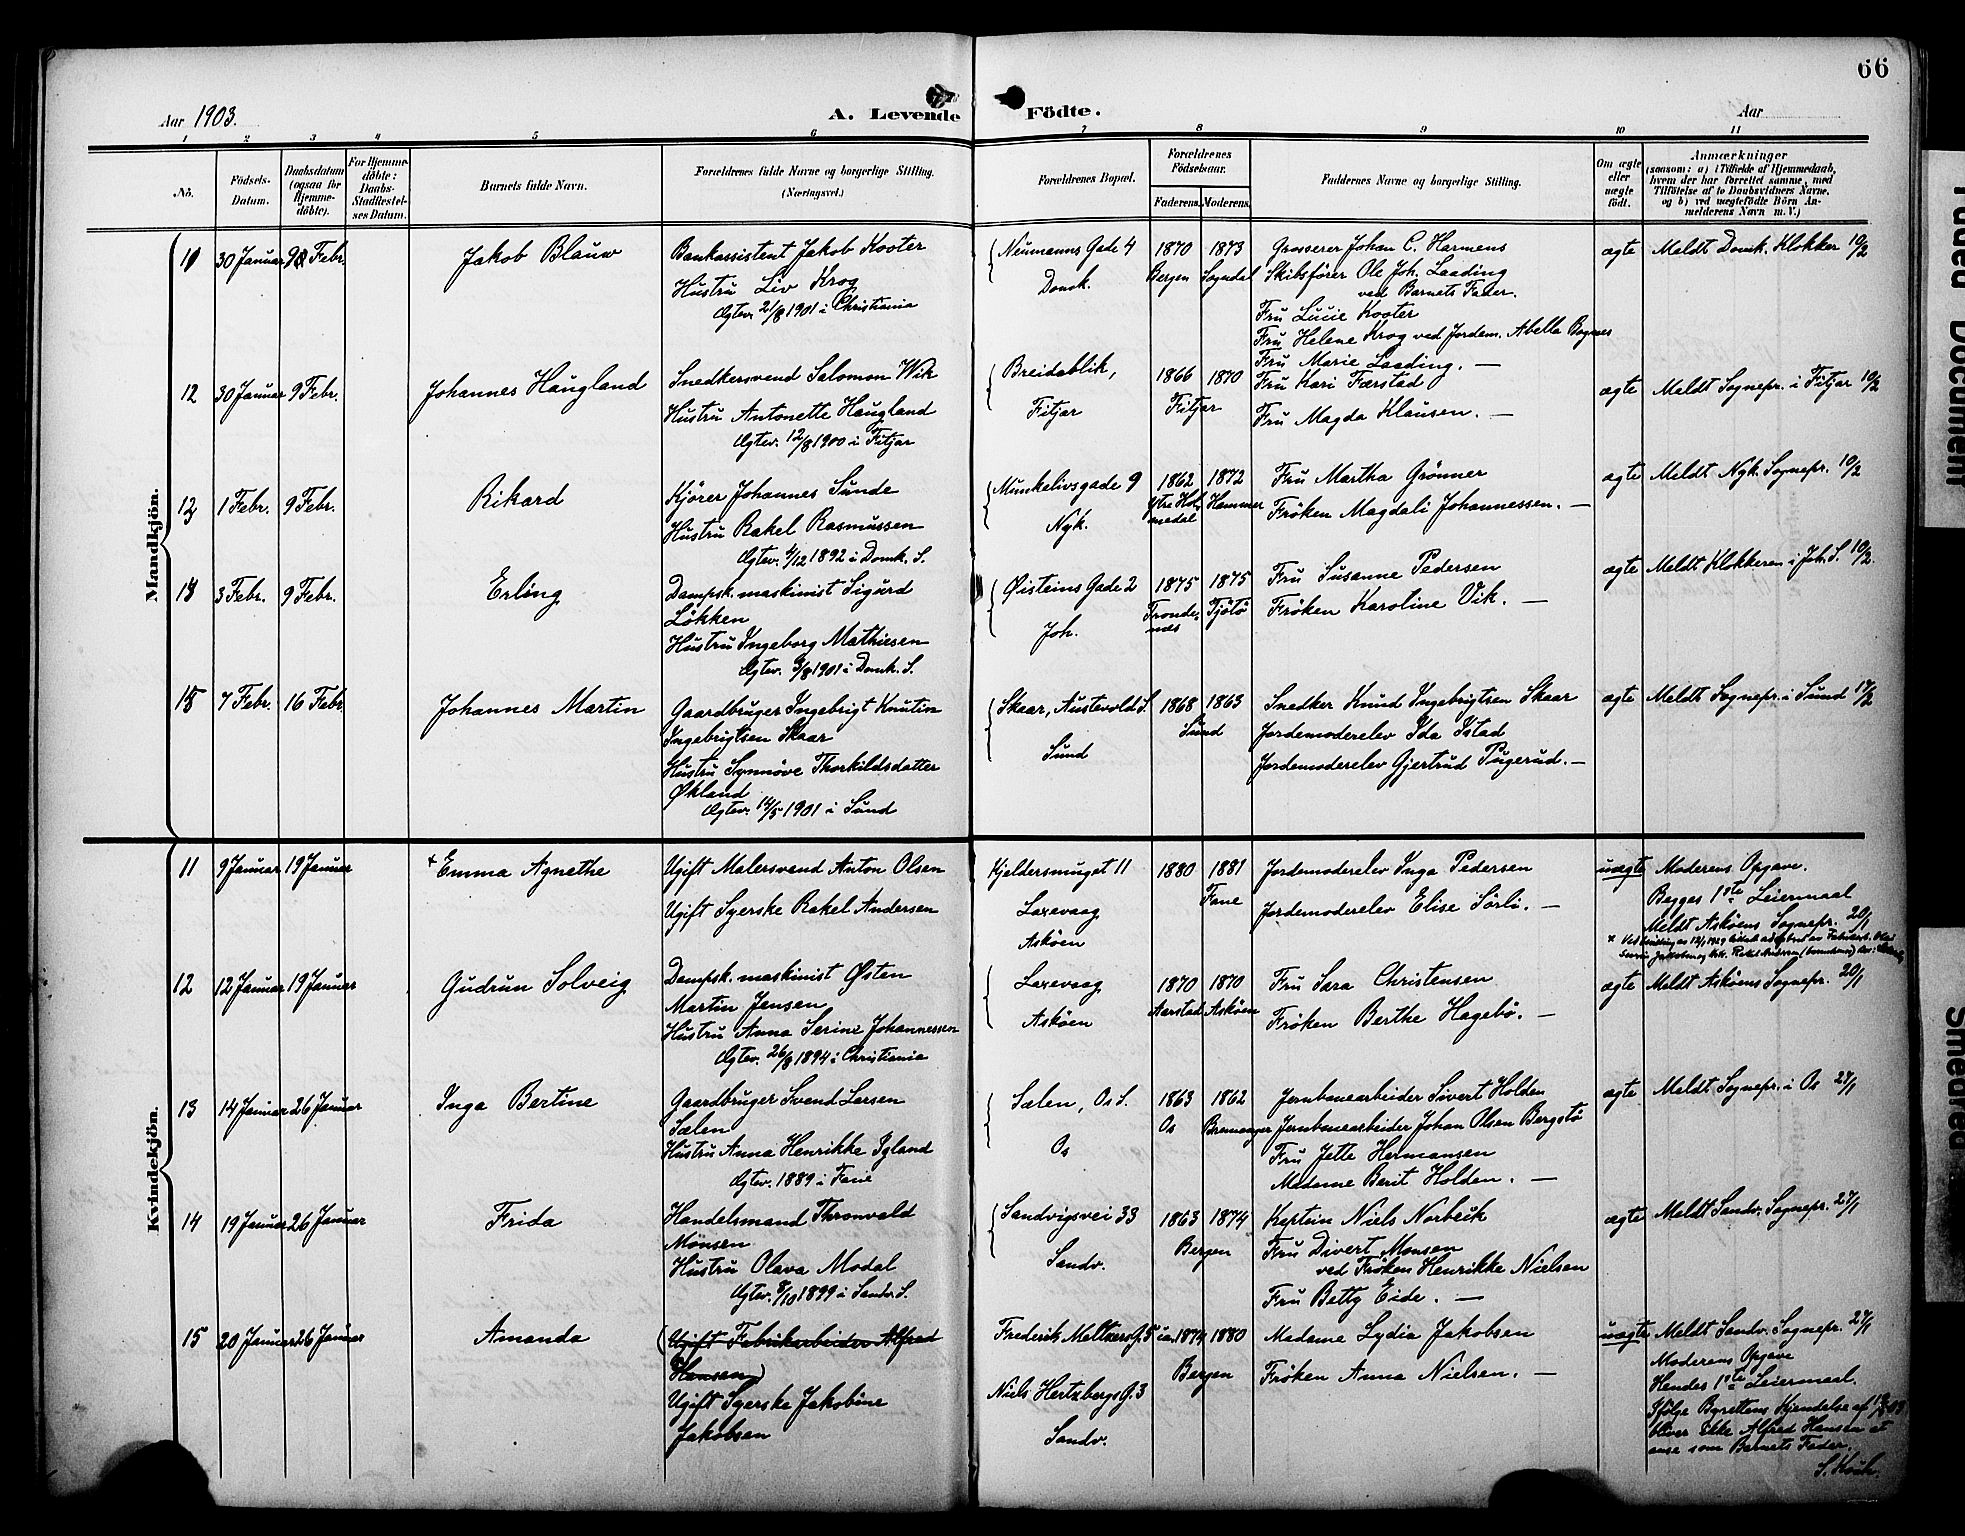 66
Aar 1903.
A. Levende Födte.
Aar
1 2 3 4 5 6 7 8 9 10 11
No.
Födsels-Datum.
Daabsdatum (ogsaa for Hjemme-döbte).
For Hjemme-döbte: Daabs-Stadfæstel-ses Datum.
Barnets fulde Navn.
Forældrenes fulde Navne og borgerlige Stilling. (Næringsvei.)
Forældrenes Bopæl.
Forældrenes Födselsaar.
Faderens. Moderens.
Faddernes Navne og borgerlige Stilling.
Om ægte eller uægte födt.
Anmærkninger
(saasom: a) i Tilfælde af Hjemmedaab, hvem der har forrettet samme, med Tilföielse af to Daabsvidners Navne, og b) ved uægtefödte Börn An-melderens Navn m. V.)
Mandkjön.
30 Januar 9 Febr.
Jakob Blauw
Bankassistent Jakob Kooter
Hustru Liv Krog
Ægtev. 21/8 1901 i Christiania
Neumanns Gade 4
Domk.
1870 1873
Bergen Sogndal
Grosserer Johan C. Harmens
Skibsförer Ole Joh. Laading
ved Barnets Fader.
Fru Lucie Kooter
Fru Helene Krog ved Jordem. Abella Bognes
Fru Marie Laading. —
ægte
Meldt Domk. Klokker 10/2
12 30 Januar 9 Febr.
Johannes Haugland
Snedkersvend Salomon Wik
Hustru Antonette Haugland
Ægtev. 12/8 1900 i Fitjar
Breidablik,
Fitjar
1866 1870
Fitjar
Fru Kari Færstad
Fru Magda Klausen. —
ægte
Meldt Sognepr. i Fitjar 10/2
1 Febr. 9 Febr.
Rikard
Kjörer Johannes Sunde
Hustru Rakel Rasmussen
Ægtev. 4/12 1892 i Domk. S.
Munkelivsgade 9
Nyk.
1862 1872
Ytre Hol-medal Hammer
Fru Martha Grönner
Fröken Magdali Johannessen. —
ægte
Meldt Nyk. Sognepr. 10/2
3 Febr. 9 Febr.
Erling
Dampsk. maskinist Sigurd
Lökken
Hustru Ingeborg Mathiesen
Ægtev. 3/8 1901 i Domk. S.
Øisteins Gade 2
Joh.
1875 1875
Tronde-næs Tjötö
Fru Susanne Pedersen
Fröken Karoline Vik. —
ægte
Meldt Klokkeren i Joh. S. 10/2
15 7 Febr. 16 Febr.
Johannes Martin
Gaardbruger Ingebrigt Knutin
Ingebrigtsen Skaar
Hustru Synnöve Thorkildsdatter
Økland
Ægtev. 14/5 1901 i Sund
Skaar, Austevold S.
Sund
1868 1863
Sund
Snedker Knud Ingebrigtsen Skaar
Jordemoderelev Ida Istad
Jordemoderelev Gjertrud Pugerud. —
ægte
Meldt Sognepr. i Sund 17/2
Kvindekjön.
11 9 Januar 19 Januar
× Emma Agnethe
Ugift Malersvend Anton Olsen
Ugift Syerske Rakel Andersen
Kjeldersmuget 11
Laxevaag
Askøen
1880 1881
Fane
Jordemoderelev Inga Pedersen
Jordemoderelev Elise Sörli. —
uægte
Moderens Opgave.
Begges 1ste Leiermaal
Meldt Askøens Sognepr. 20/1
12 12 Januar 19 Januar
Gudrun Solveig
Dampsk. maskinist Østen
Martin Jensen
Hustru Anna Serine Johannessen
Ægtev. 26/8 1894 i Christiania
Laxevaag
Askøen
1870 1870
Aarstad Askøen
Fru Sara Christensen
Fröken Berthe Hagebö. —
ægte
Meldt Askøens Sognepr. 20/1
13 14 Januar 26 Januar
Inga Bertine
Gaardbruger Svend Larsen
Sælen
Hustru Anna Henrikke Igland
Ægtev. 1889 i Fane
Sælen, Os S.
Os
1863 1862
Os Bremanger
Jernbanearbeider Sivert Holden
Jernbanearbeider Johan Olsen Bergstö
Fru Jette Hermansen
Madame Berit Holden. —
ægte
Meldt Sognepr. i Os 27/1
14 19 Januar 26 Januar
Frida
Handelsmand Thronvald
Mönsen
Hustru Olava Modal
Ægtev. 8/10 1899 i Sandv. S.
Sandvigsvei 33
Sandv.
1863 1874
Bergen
Kaptein Niels Norbeik
Fru Divert Monsen
ved Fröken Henrikke Nielsen
Fru Betty Eide. —
ægte
Meldt Sandv. Sognepr. 27/1
15 20 Januar 26 Januar
Amanda
(Ugift Fabrikarbeider Alfred
Hansen)
Ugift Syerske Jakobine
Jakobsen
Frederik Meltzers G. 5
Niels Hertzbergs G. 3
Sandv.
1874 1880
Bergen
Madame Lydia Jakobsen
Fröken Anna Nielsen. —
uægte
Meldt Sandv. Sognepr. 27/1
Moderens Opgave
Hendes 1ste Leiermaal.
Ifölge Byrettens Kjendelse af
bliver ikke Alfred Hansen at
anse som Barnets Fader.
S. Koch.
Faded Document
Smeared